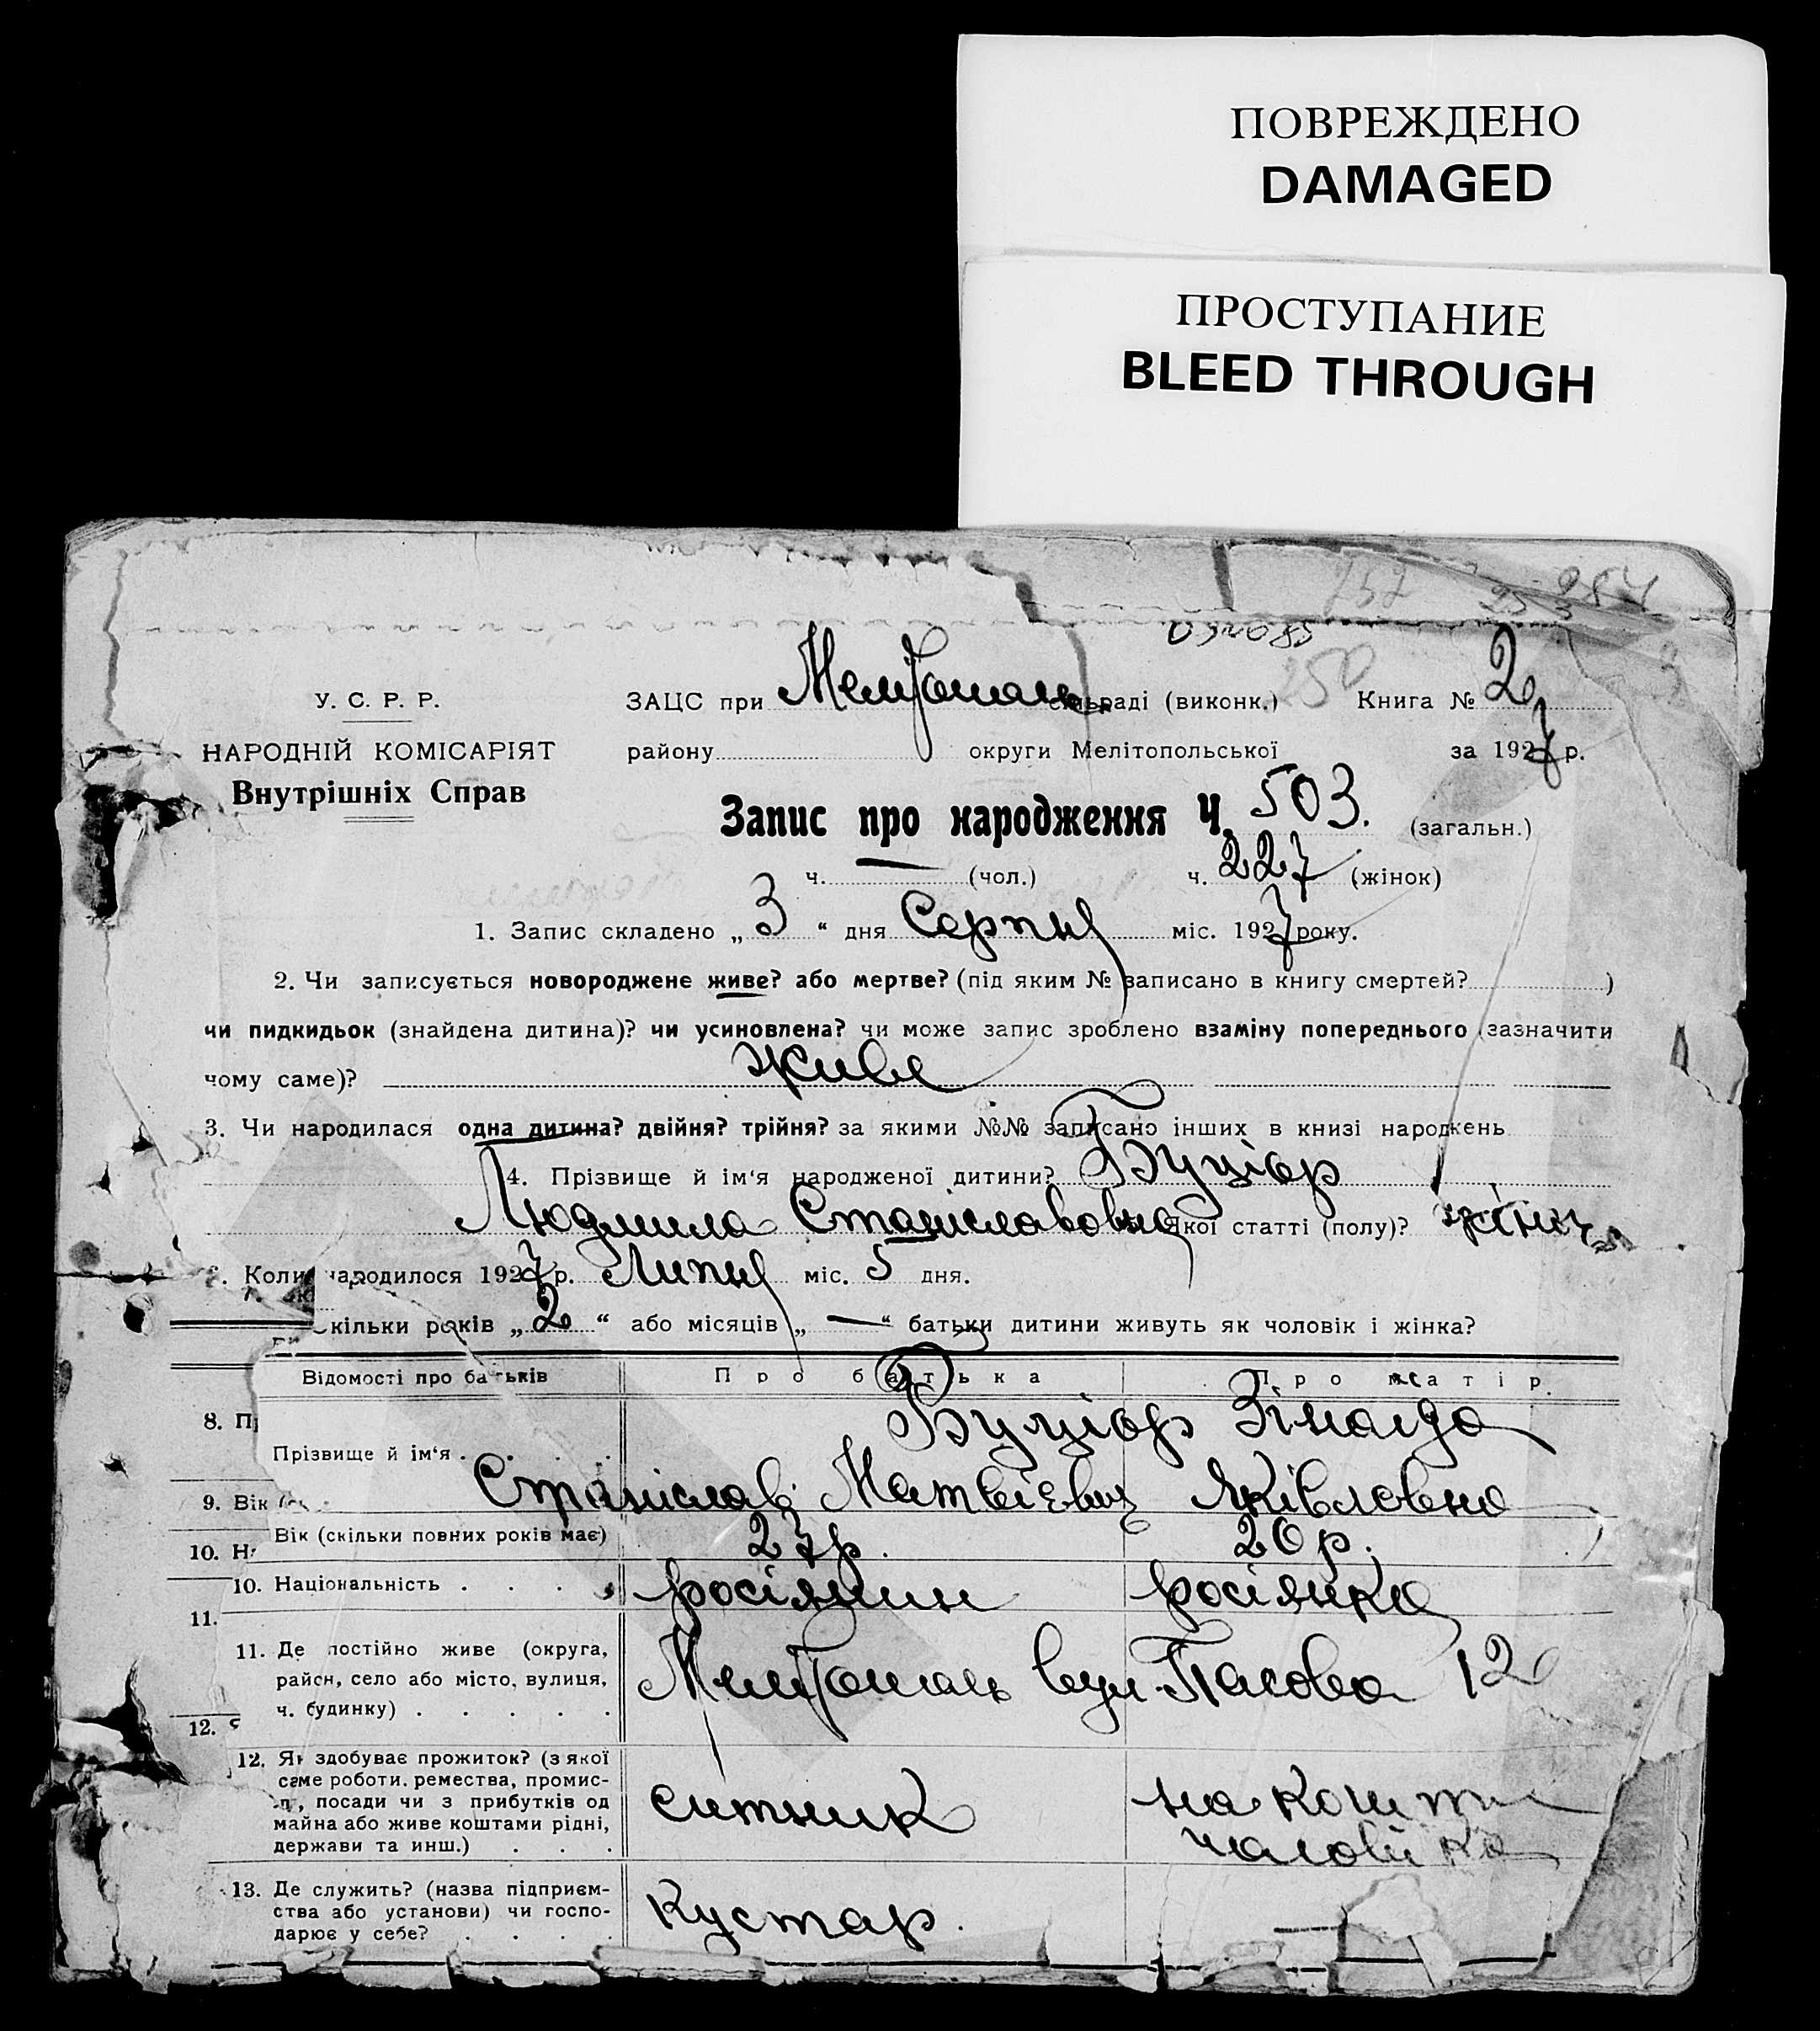 ПОВРЕЖДЕНО
DAMAGED
ПРОСТУПАНИЕ
BLEED THROUGH
252 984
250
У. С. Р. Р.
НАРОДНІЙ КОМІСАРІЯТ
Внутрішніх Справ
ЗАЦС при Мелітополь сільраді (виконк.) Книга № 2
району округи Мелітопольської за 1927 р.
Запис про народження Ч. 503. (загальн.)
ч. — (чол.) ч. 227 (жінок)
1. Запис складено „ 3 “ дня Серпня міс. 1927 року.
2. Чи записується новороджене живе? або мертве? (під яким № записано в книгу смертей? )
чи пидкидьок (знайдена дитина)? чи усиновлена? чи може запис зроблено взаміну попереднього (зазначити
чому саме)? живе
3. Чи народилася одна дитина? двійня? трійня? за якими №№ записано інших в книзі народжень
4. Прізвище й ім‘я народженої дитини? Буціор
Людмила Станіславовна якої статті (полу)? жіноч.
Коли народилося 1927 р. Липня міс. 5 дня.
Скільки років „ 2 “ або місяців „ — “ батьки дитини живуть як чоловік і жінка?
Відомості про батьків Про батька Про матір
8. Пр
Прізвище й ім‘я . . . . Буціор Зінаїда
Станіслав Матвієвич Яківловна
9. Вік
Вік (скільки повних років має) 27 р. 20 р.
10. На
10. Національність . . . . росіянин росіянка
11.
11. Де постійно живе (округа,
район, село або місто, вулиця,
ч. будинку) . . . . . Мелітополь вул. 12
12. Я
12. Як здобуває прожиток? (з якої
саме роботи, ремества, промис-
л , посади чи з прибутків од
майна або живе коштами рідні,
держави та инш.) . . . ситник на кошти
чоловіка
13. Де служить? (назва підприєм-
ства або установи) чи госпо-
дарює у себе? . . . . Кустар. —